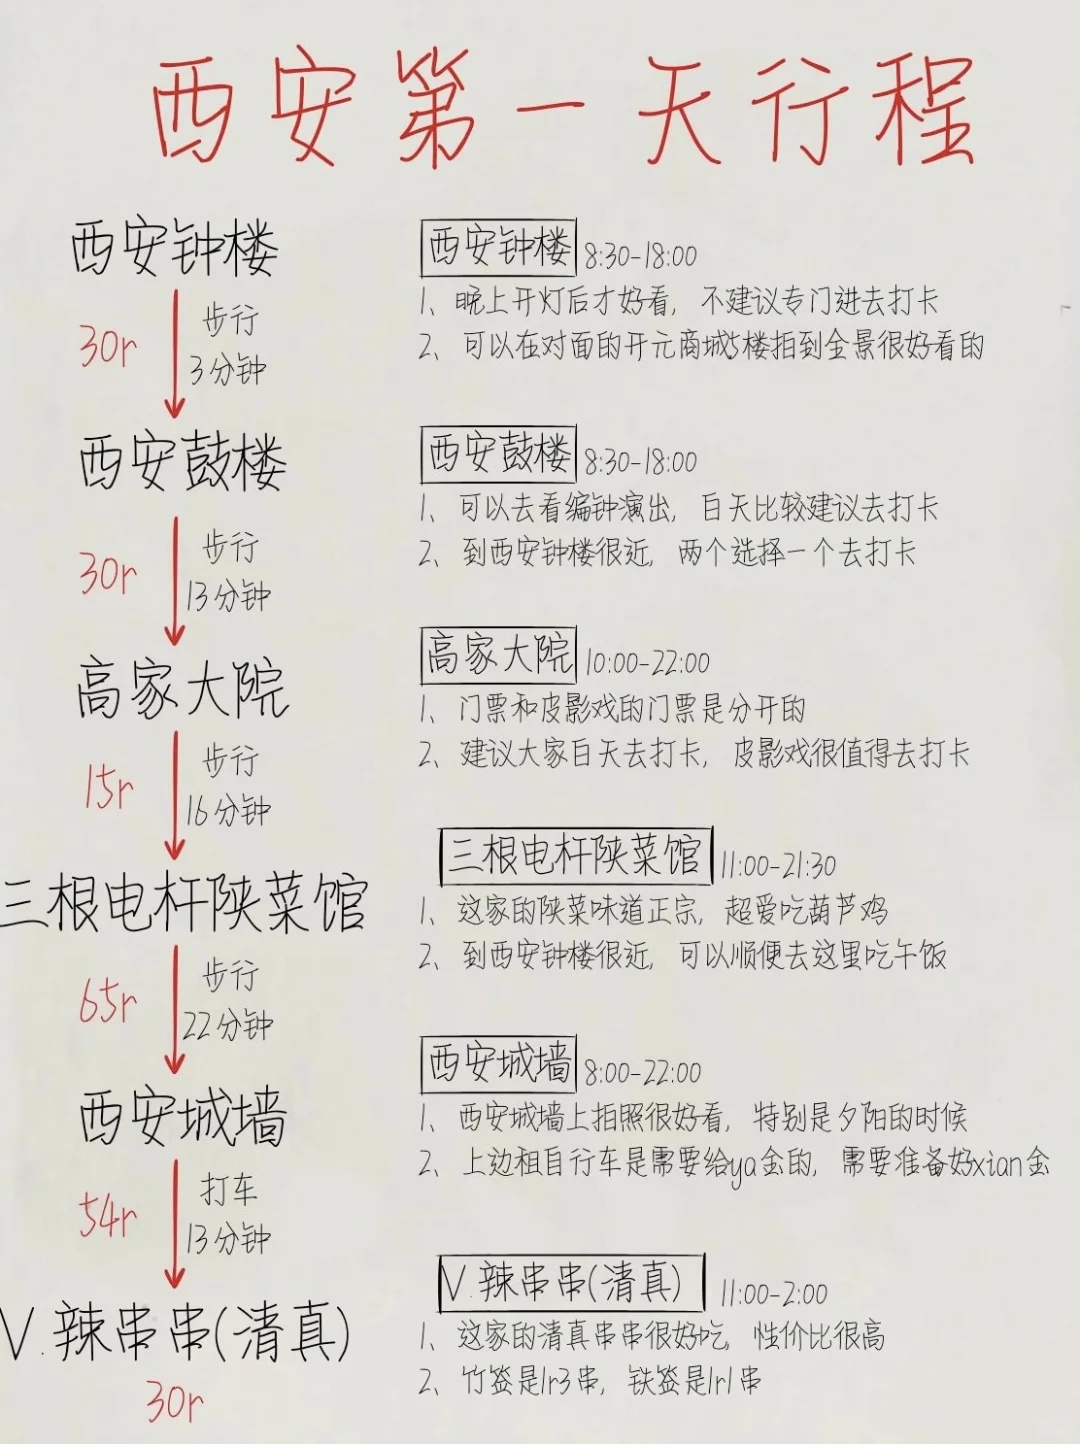 西安第一天行程
西安钟楼
30r
步行
3分钟
西安鼓楼
30r
步行
13分钟
高家大院
15r
步行
16分钟
三根电杆陕菜馆
65r
步行
22分钟
西安城墙
54r
打车
13分钟
V.辣串串(清真)
30r
西安钟楼 8:30-18:00
1、晚上开灯后才好看，不建议专门进去打卡
2、可以在对面的开元商城5楼拍到全景很好看的
西安鼓楼 8:30-18:00
1、可以去看编钟演出，白天比较建议去打卡
2、到西安钟楼很近，两个选择一个去打卡
高家大院 10:00-22:00
1、门票和皮影戏的门票是分开的
2、建议大家白天去打卡，皮影戏很值得去打卡
三根电杆陕菜馆 11:00-21:30
1、这家的陕菜味道正宗，超爱吃葫芦鸡
2、到西安钟楼很近，可以顺便去这里吃午饭
西安城墙 8:00-22:00
1、西安城墙上拍照很好看，特别是夕阳的时候
2、上边租自行车是需要给ya金的，需要准备奶xian金
V.辣串串(清真) 11:00-2:00
1、这家的清真串串很好吃，性价比很高
2、竹签是1r3串，铁签是1r1串